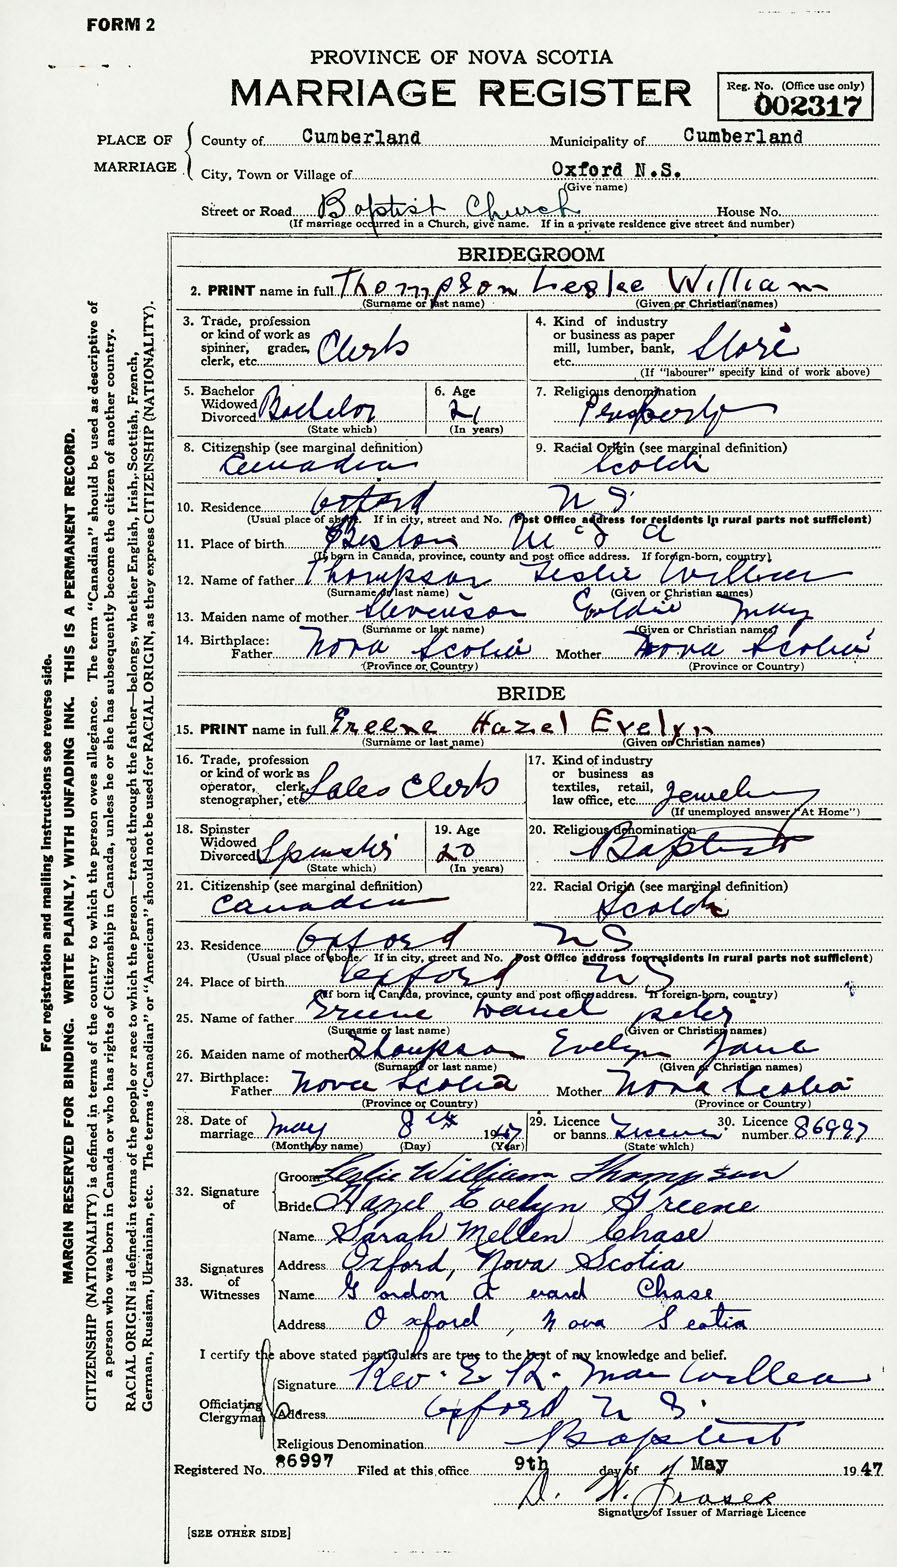 FORM 2
PROVINCE OF NOVA SCOTIA
MARRIAGE REGISTER
Reg. No. (Office use only)
002317
PLACE OF MARRIAGE
County of Cumberland Municipality of Cumberland
City, Town or Village of Oxford N.S.
(Give name)
Street or Road Baptist Church House No.
(If marriage occurred in a Church, give name. If in a private residence give street and number)
BRIDEGROOM
2. PRINT name in full Thompson Leslie William
(Surname or last name) (Given or Christian names)
3. Trade, profession or kind of work as spinner, grader, clerk, etc. Clerk
4. Kind of industry or business as paper mill, lumber, bank, etc. Store
(If "labourer" specify kind of work above)
5. Bachelor Widowed Divorced Bachelor
(State which)
6. Age 21
(In years)
7. Religious denomination
8. Citizenship (see marginal definition) Canadian
9. Racial Origin (see marginal definition) Scotch
10. Residence Oxford N S
(Usual place of abode. If in city, street and No. Post Office address for residents in rural parts not sufficient)
11. Place of birth Boston
(If born in Canada, province, county and post office address. If foreign-born, country)
12. Name of father Thompson Leslie William
(Surname or last name) (Given or Christian names)
13. Maiden name of mother Stevenson Goldie May
(Surname or last name) (Given or Christian names)
14. Birthplace: Father Nova Scotia Mother Nova Scotia
(Province or Country) (Province or Country)
BRIDE
15. PRINT name in full Greene Hazel Evelyn
(Surname or last name) (Given or Christian names)
16. Trade, profession or kind of work as operator, clerk, stenographer, etc. Sales Clerk
17. Kind of industry or business as textiles, retail, law office, etc. Jewelry
(If unemployed answer "At Home")
18. Spinster Widowed Divorced Spinster
(State which)
19. Age 20
(In years)
20. Religious denomination Baptist
21. Citizenship (see marginal definition) Canadian
22. Racial Origin (see marginal definition) Scotch
23. Residence Oxford N S
(Usual place of abode. If in city, street and No. Post Office address for residents in rural parts not sufficient)
24. Place of birth Oxford N S
(If born in Canada, province, county and post office address. If foreign-born, country)
25. Name of father Greene Daniel
(Surname or last name) (Given or Christian names)
26. Maiden name of mother Thompson Evelyn Jane
(Surname or last name) (Given or Christian names)
27. Birthplace: Father Nova Scotia Mother Nova Scotia
(Province or Country) (Province or Country)
28. Date of marriage May 8th 1947
(Month by name) (Day) (Year)
29. Licence or banns License
(State which)
30. Licence number 86997
32. Signature of
Groom Leslie William Thompson
Bride Hazel Evelyn Greene
33. Signatures of Witnesses
Name Sarah Mellen Chase
Address Oxford, Nova Scotia
Name Gordon Chase
Address Oxford, Nova Scotia
I certify the above stated particulars are true to the best of my knowledge and belief.
Officiating Clergyman
Signature Rev. E. R. Mac William
Address Oxford N S.
Religious Denomination Baptist
Registered No. 86997 Filed at this office 9th day of May 1947
D. W. Fraser
Signature of Issuer of Marriage Licence
[SEE OTHER SIDE]
For registration and mailing instructions see reverse side.
MARGIN RESERVED FOR BINDING. WRITE PLAINLY, WITH UNFADING INK. THIS IS A PERMANENT RECORD.
CITIZENSHIP (NATIONALITY) is defined in terms of the country to which the person owes allegiance. The term "Canadian" should be used as descriptive of
a person who was born in Canada or who has rights of Citizenship in Canada, unless he or she has subsequently become the citizen of another country.
RACIAL ORIGIN is defined in terms of the people or race to which the person—traced through the father—belongs, whether English, Irish, Scottish, French,
German, Russian, Ukrainian, etc. The terms "Canadian" or "American" should not be used for RACIAL ORIGIN, as they express CITIZENSHIP (NATIONALITY).